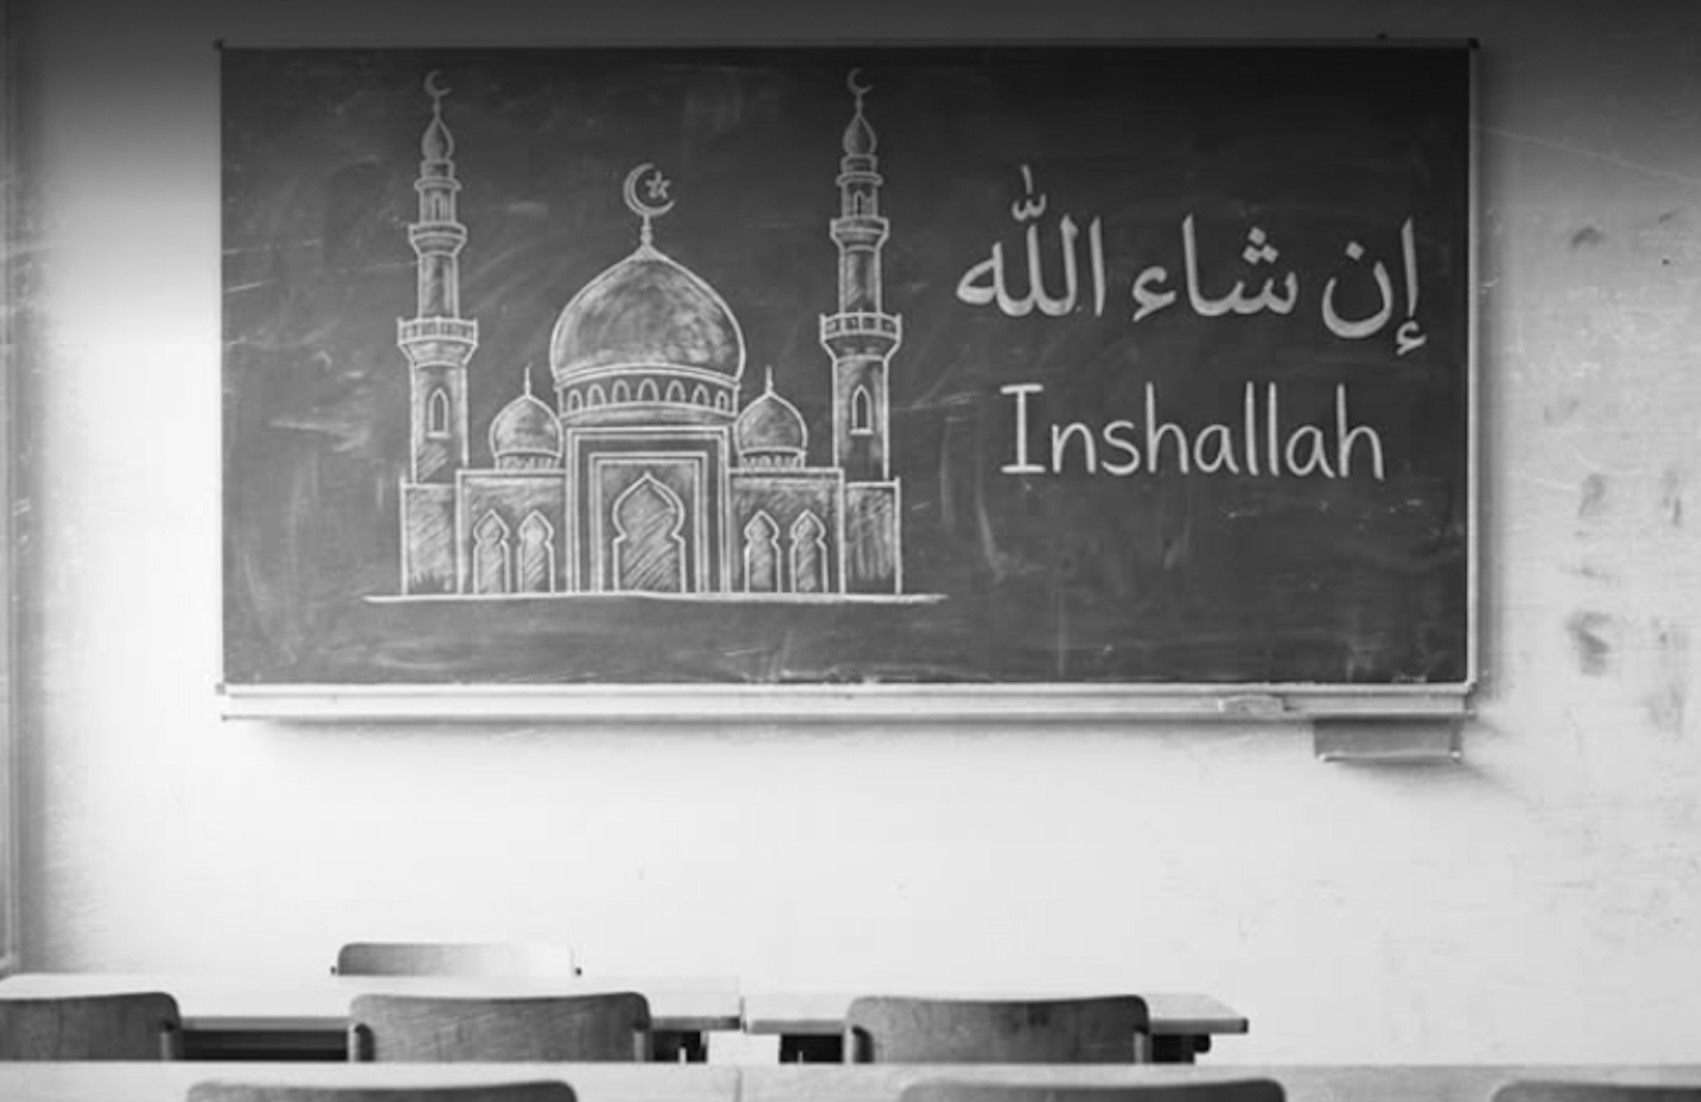 إن شاء اللّٰه
Inshallah